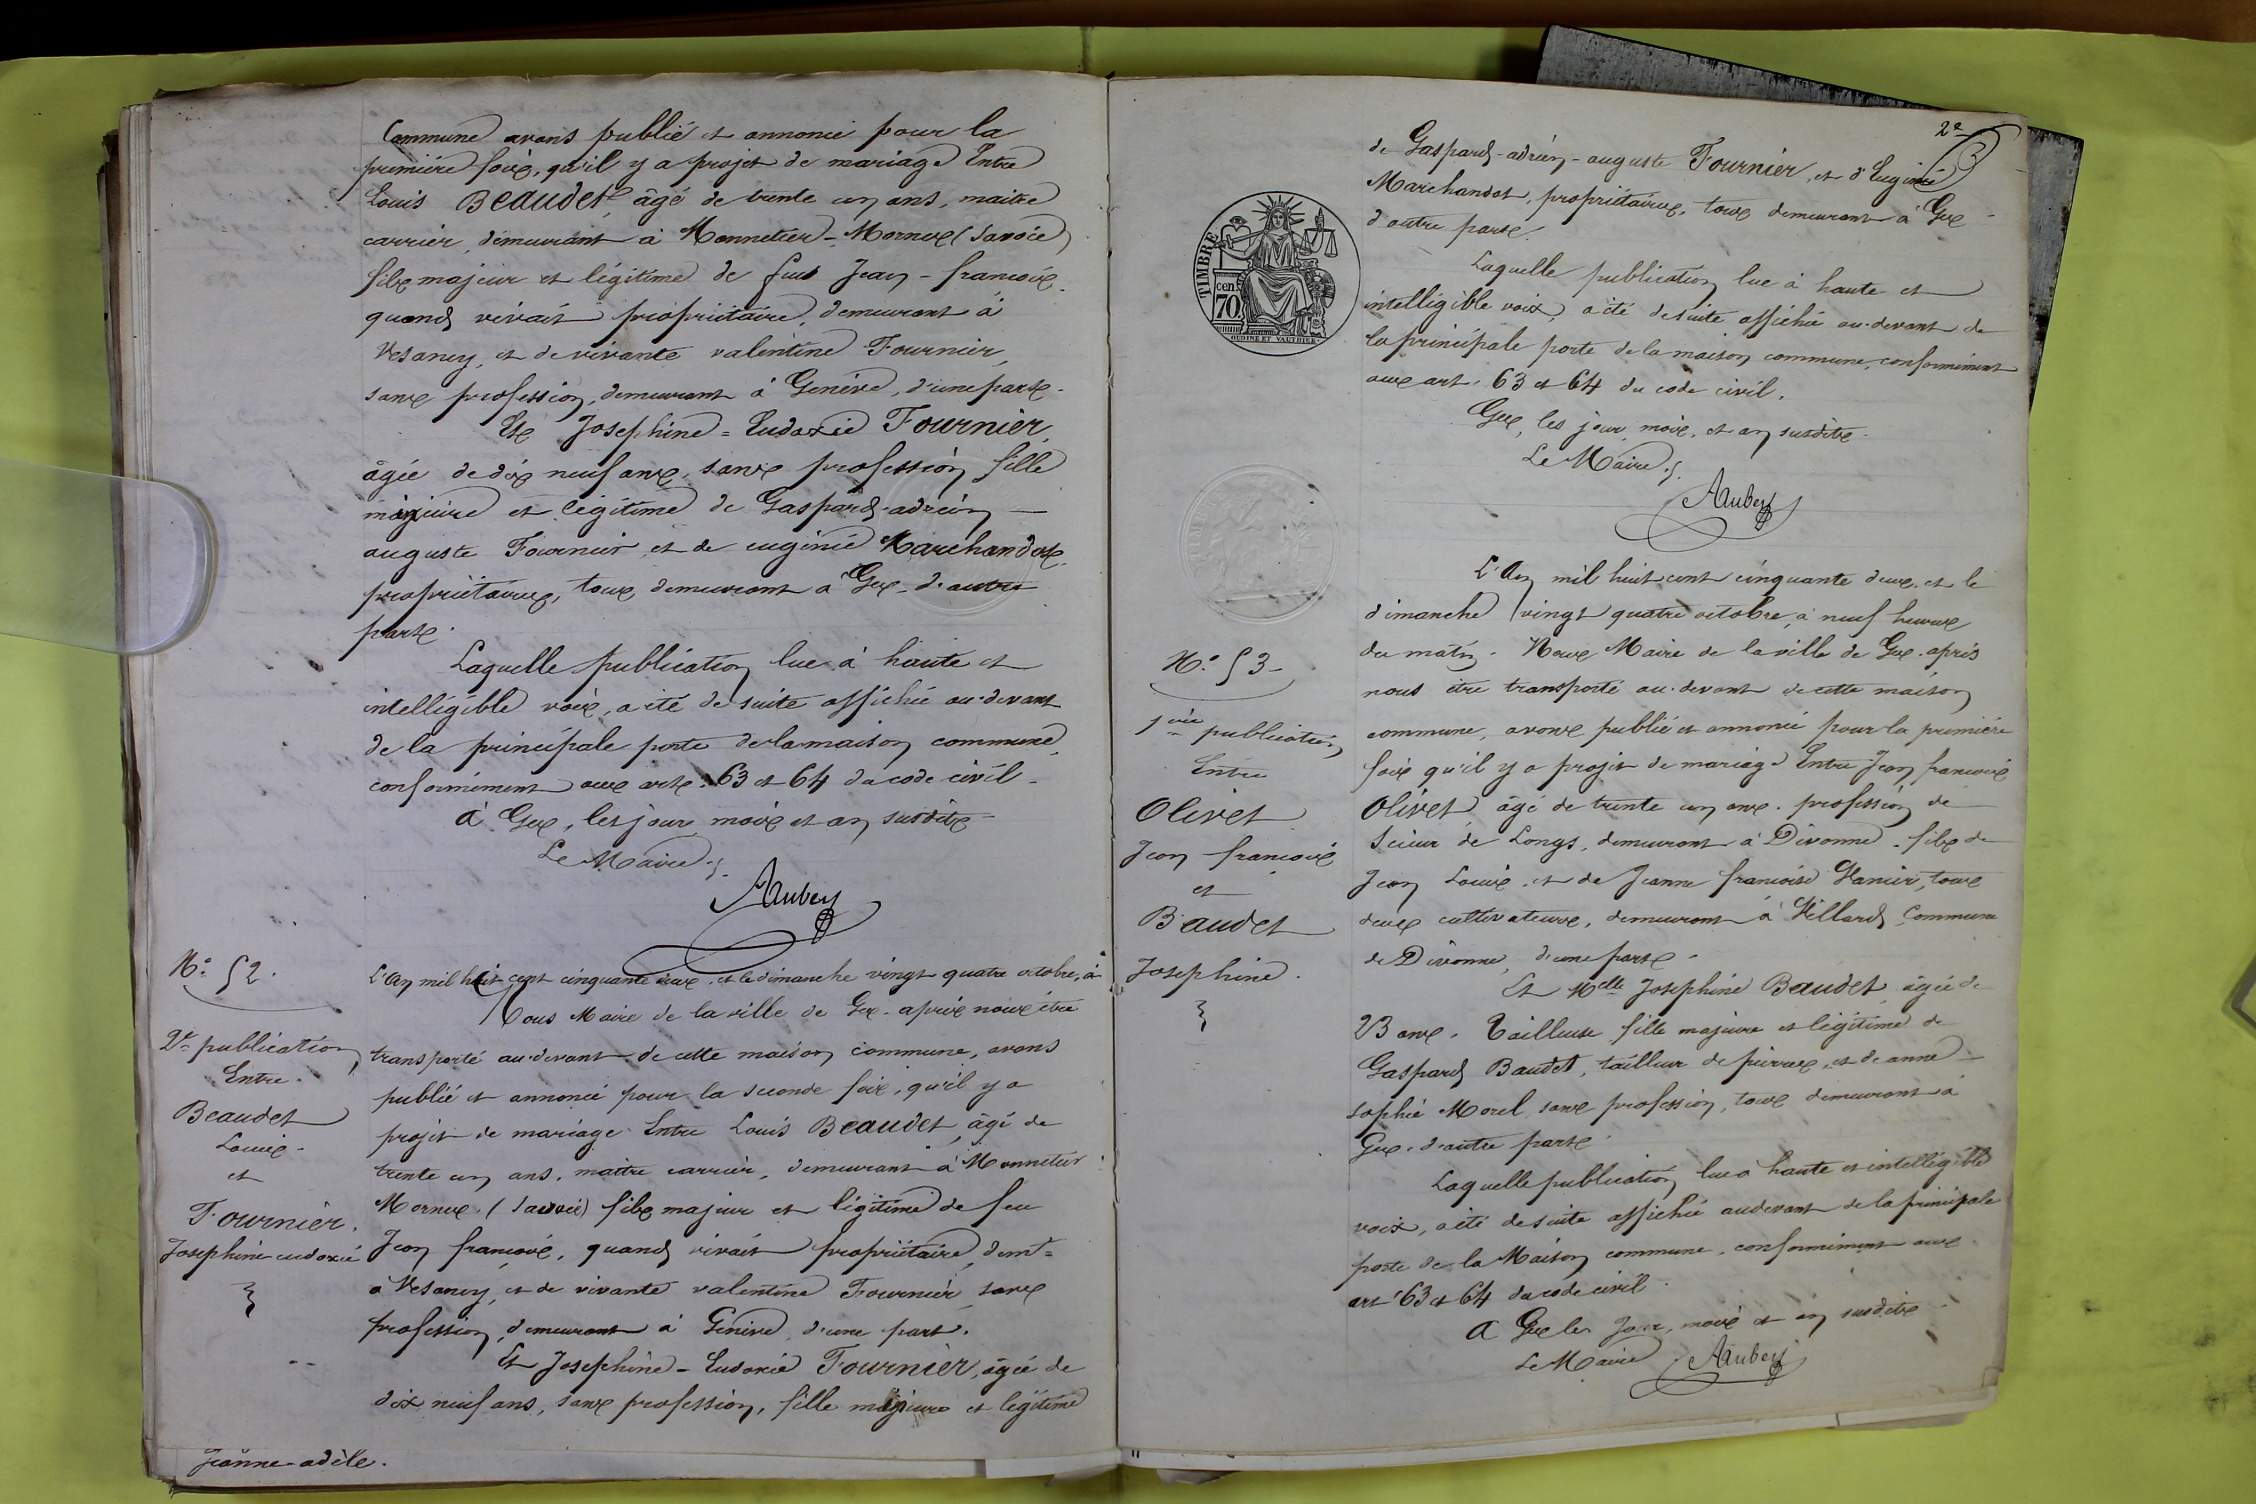 Commune avons publié et annoncé pour la
première fois, qu'il y a projet de mariage Entre
Louis Beaudet, âgé de trente un ans, maitre
carrier, demeurant à Monnetier-Mornex (Savoie)
fils majeur et légitime de feu Jean-françois
quand vivait propriétaire, demeurant à
Vesancy, et de vivante valentine Fournier,
sans profession, demeurant à Genève, d'une part.
Et Josephine-Eudoxie Fournier,
âgée de dix neuf ans, sans profession, fille
mineure et légitime de Gaspard-adrien
auguste Fournier et de eugénie Marchandot
propriétaires, tous demeurant à Gex. d'autre
part.
Laquelle publication lue à haute et
intelligible voix, a été de suite affichée au-devant
de la principale porte de la maison commune,
conformément aux arts. 63 et 64 du code civil.
à Gex, les jour, mois et an susdits.
Le Maire,
Aubery
N.° 52.
2.e publication
Entre
Beaudet
Louis
et
Fournier
Josephine eudoxie
L'An mil huit cent cinquante deux, et le dimanche vingt quatre octobre, à
Nous Maire de la ville de Gex. après nous être
transporté au-devant de cette maison commune, avons
publié et annoncé pour la seconde fois, qu'il y a
projet de mariage Entre Louis Beaudet, âgé de
trente un ans, maitre carrier, demeurant à Monnetier
Mornex (Savoie) fils majeur et légitime de feu
Jean françois, quand vivait propriétaire, demt
à Vesancy, et de vivante valentine Fournier, sans
profession, demeurant à Genève, d'une part.
Et Josephine-Eudoxie Fournier, âgée de
dix neuf ans, sans profession, fille mineure et légitime
Jeanne-adèle.
2e
de Gaspard-adrien-auguste Fournier, et d'Eugénie
Marchandot, propriétaires, tous demeurant à Gex
d'autre part.
Laquelle publication lue à haute et
intelligible voix, a été de suite affichée au-devant de
la principale porte de la maison commune, conformément
aux art. 63 et 64 du code civil.
Gex, les jour, mois, et an susdits.
Le Maire,
Aubery
TIMBRE
cen.
70
OUDINE ET VAUTHIER
N.° 53
1ère publication
Entre
Olivet
Jean françois
et
Baudet
Josephine.
L'An mil huit cent cinquante deux, et le
dimanche vingt quatre octobre, à neuf heures
du matin. Nous Maire de la ville de Gex. après
nous être transporté au-devant de cette maison
commune, avons publié et annoncé pour la première
fois qu'il y a projet de mariage Entre Jean françois
Olivet âgé de trente un ans. profession de
Scieur de Longs, demeurant à Divonne, fils de
Jean Louis, et de Jeanne françoise Vanier, tous
deux cultivateurs, demeurant à Villard, Commune
de Divonne, d'une part.
Et Melle Josephine Baudet, âgée de
23 ans. Tailleuse, fille majeure et légitime de
Gaspard Baudet, tailleur de pierres, et de anne
sophie Morel, sans profession, tous demeurant à
Gex, d'autre part.
Laquelle publication lue à haute et intelligible
voix, a été de suite affichée au devant de la principale
porte de la Maison commune, conformément aux
art. 63 et 64 du code civil.
A Gex les Jour, mois et an susdits
Le Maire Aubery